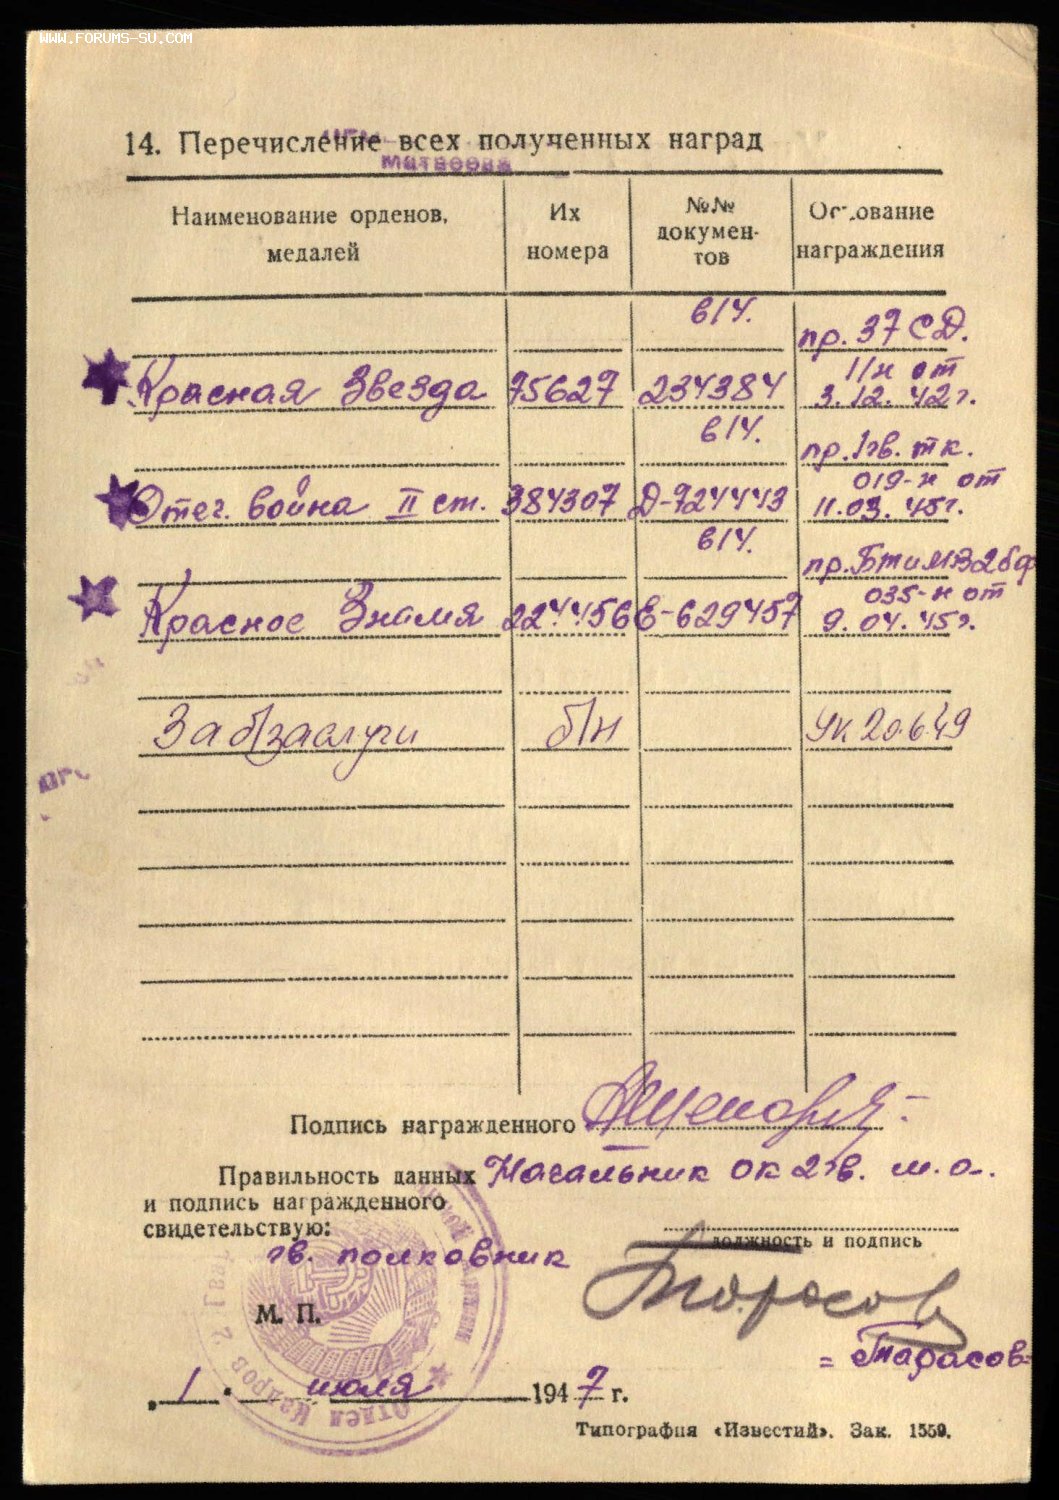 WWW.FORUMS-SU.COM
14. Перечисление всех полученных наград
Матвеева
Наименование орденов, медалей
Их номера
№№ докумен-тов
награждения
в/ч. пр. 37 СД.
Красная Звезда 75627 234384 11/н от 3.12.42г.
в/ч. пр. 1 гв. тк.
Отеч. война II ст. 384307 Д-724443 019-н от 11.03.45г.
в/ч. пр. БТ и МВ 2бф
Красное Знамя 224456 Е-629457 035-н от 9.04.45г.
За б/заслуги б/н УК 20.6.49
Подпись награжденного
Правильность данных Начальник ОК 2 гв. м.д.
и подпись награжденного
свидетельствую:
должность и подпись
гв. полковник
Тарасов
М. П.
= Тарасов=
Отдел Кадров 2 Гв.
1 июля 1947 г.
Типография «Известий». Зак. 1559.